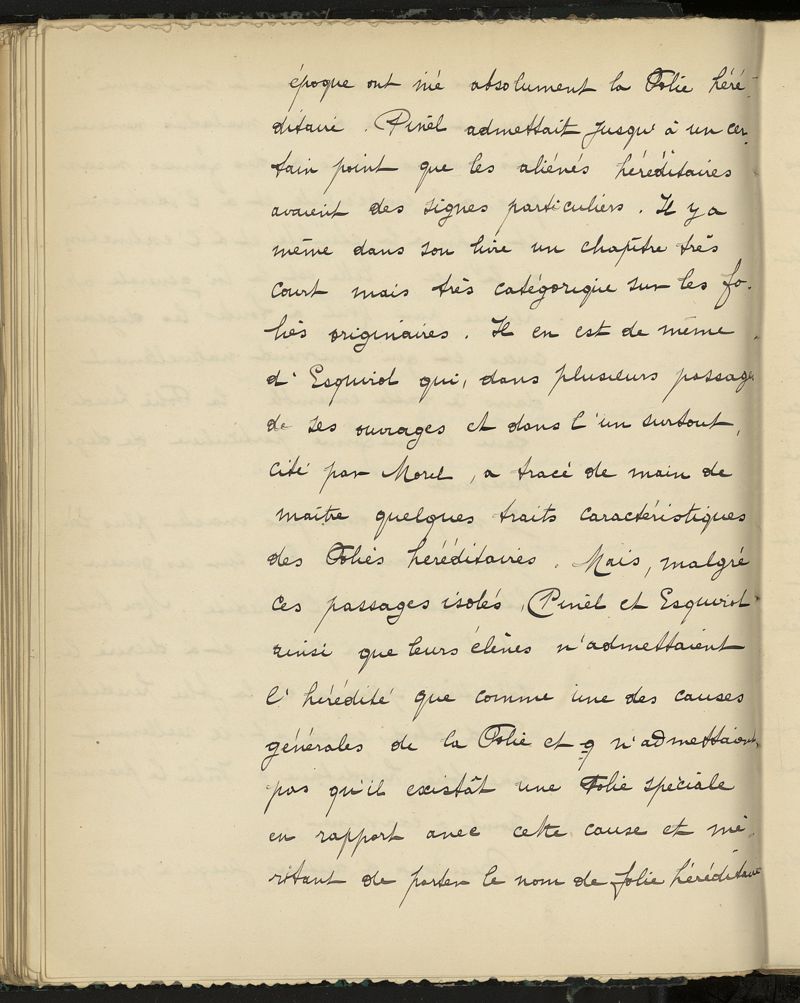 époque ont nié absolument la Folie héré-
ditaire. Pinel admettait jusqu'à un cer-
tain point que les aliénés héréditaires
avaient des signes particuliers. Il y a
même dans son livre un chapitre très
court mais très catégorique sur les fo-
lies originaires. Il en est de même
d'Esquirol qui, dans plusieurs passages
de ses ouvrages et dans l'un surtout,
cité par Morel, a tracé de main de
maître quelques traits caractéristiques
des Folies héréditaires. Mais, malgré
ces passages isolés, Pinel et Esquirol
ainsi que leurs élèves n'admettaient
l'hérédité que comme une des causes
générales de la Folie et q n'admettaient
pas qu'il existât une Folie spéciale
en rapport avec cette cause et mé-
ritant de porter le nom de folie héréditaire